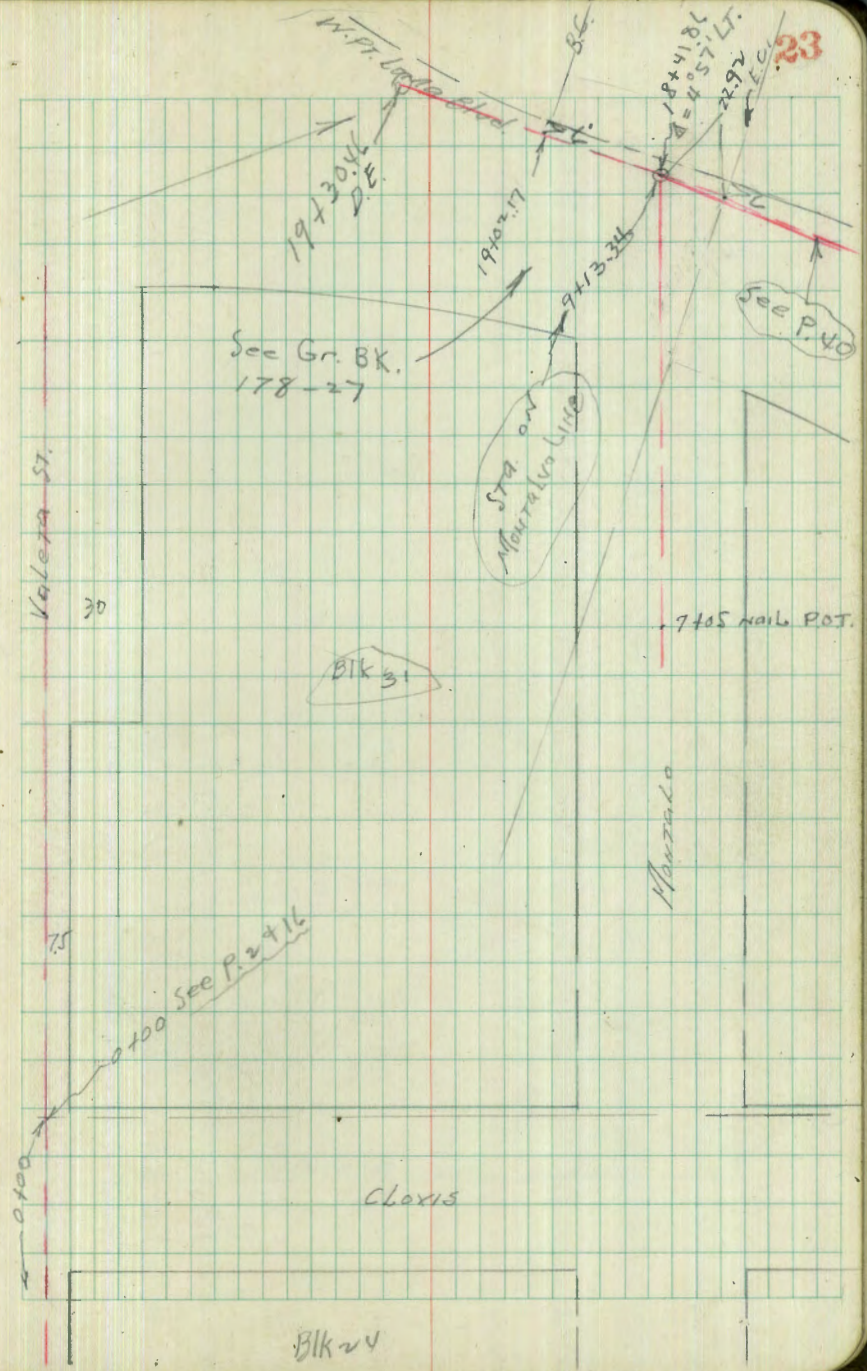 23
W. Pt. Loma Blvd.
B.C.
18+41.86
Δ = 4°57' LT.
22.92
E.C.
19+30.46
D.E.
19+02.17
9+13.34
See P. 40
See Gr. BK.
178-27
Sta. on
Montalvo Line
Valeta St.
30
7+05 Nail P.O.T.
Blk 31
Montalvo
75
0+00 See P. 2 & 16
0+00
Clovis
Blk 24